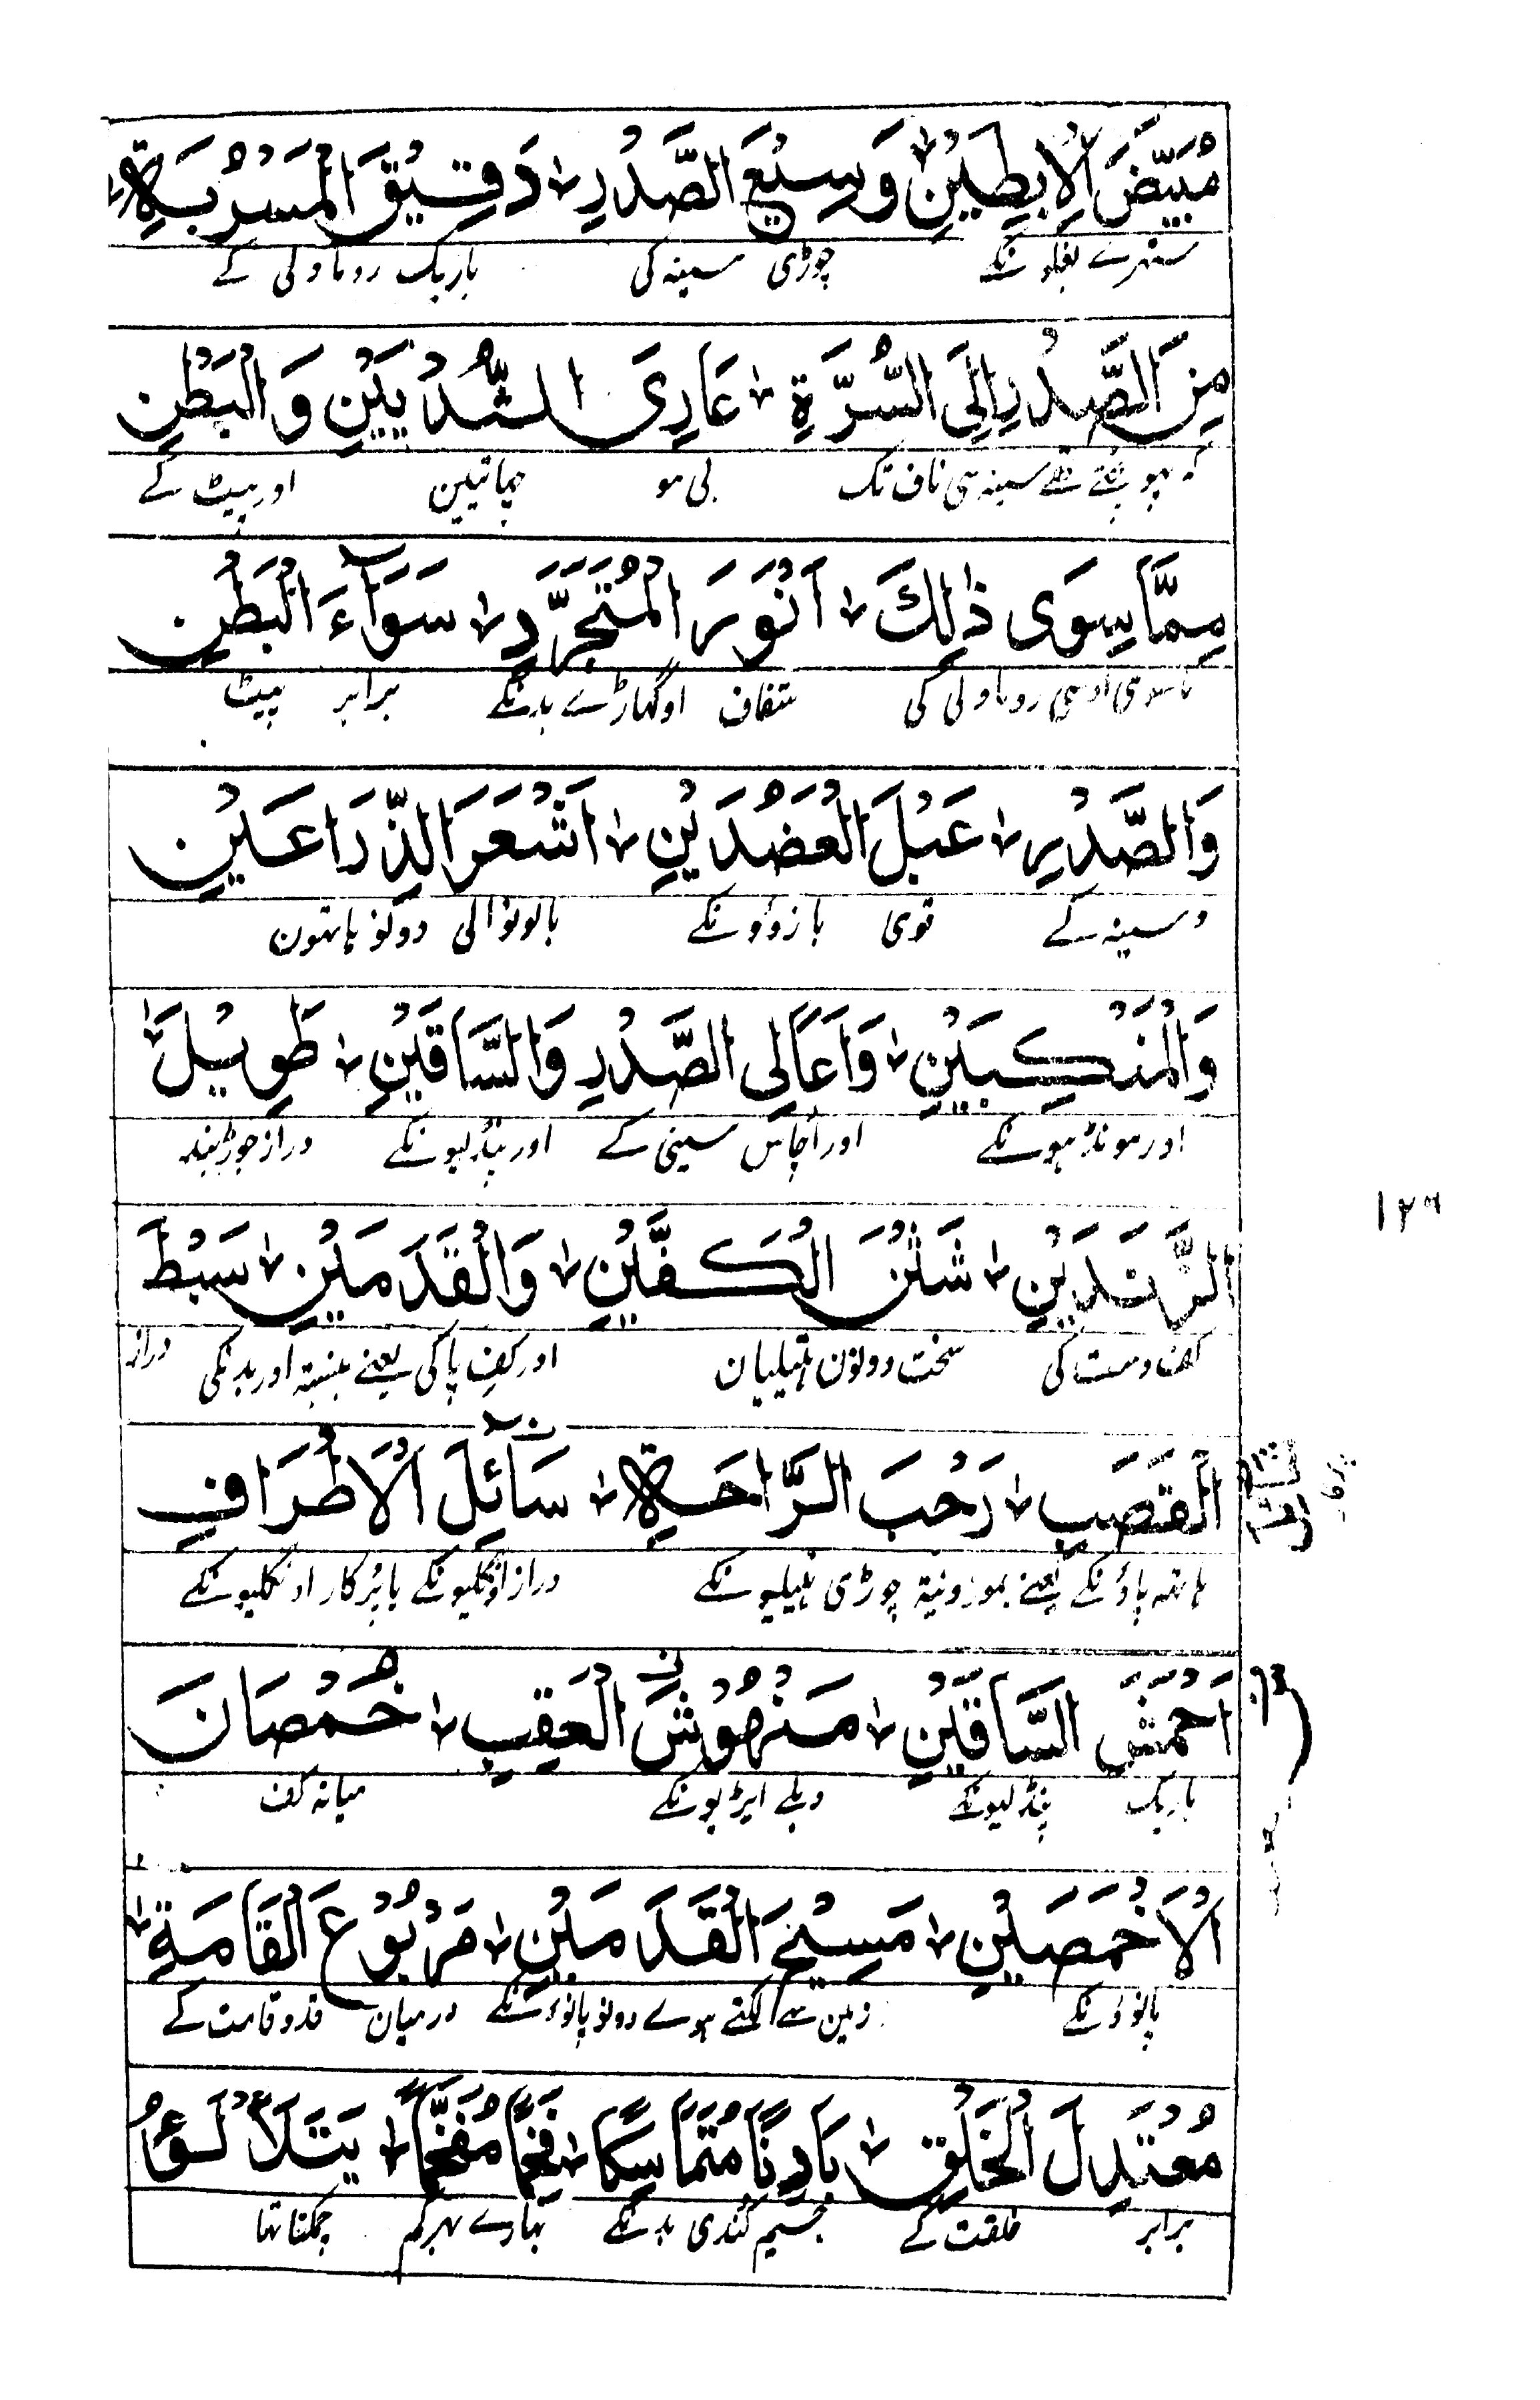 مُبَيَّضَ الْاِبِطَيْنِ وَسِيْعَ الصَّدْرِ دَقِيْقَ الْمَسْرُبَةِ
ستہرے بغلونکے چوڑی سینہ کی باریک روماولی کے
مِنَ الصَّدْرِ اِلَى السُّرَّةِ عَارِىَ الثُّدْيَيْنِ وَالْبَطْنِ
سینہ سی ناف تک بی مو چہاتیین اور پیٹ کے
مِمَّا سِوٰى ذٰلِكَ اَنْوَرَ الْمُتَجَرَّدِ سَوَآءَ الْبَطْنِ
ماسوی اوسی روماولی کی شفاف اوگھاڑے بدنکے برابر پیٹ
وَالصَّدْرِ عَبْلَ الْعَضُدَيْنِ اَشْعَرَ الذِّرَاعَيْنِ
و سینہ کے قوی بازوؤنکے بالونوالی دونو ہاتہون
وَالْمَنْكِبَيْنِ وَاَعَالِى الصَّدْرِ وَالسَّاقَيْنِ طَوِيْلَ
اور مونڈہونکے اور اچاس سینی کے اور پنڈلیونکے دراز جوڑبند
الزَّنْدَيْنِ شَثْنَ الْكَفَّيْنِ وَالْقَدَمَيْنِ سَبْطَ
کف دست کی سخت دونون ہتیلیان اور کف پا کی یعنے بنسبتہ اور بدنکی دراز
الْقَصَبِ رَحْبَ الرَّاحَةِ سَآئِلَ الْاَطْرَافِ
ہاتہہ پاؤنکے یعنے بموزونیة چوڑی ہتیلیونکے دراز اونگلیونکے یا پُرکار اونگلیونکے
اَحْمَشَ السَّاقَيْنِ مَنْهُوْشَ الْعَقِبِ خُمْصَانَ
باریک پنڈلیونکے دبلے ایڑیونکے میانہ کف
الْاَخْمَصَيْنِ مَسِيْحَ الْقَدَمَيْنِ مَرْبُوْعَ الْقَامَةِ
پانوؤنکے زمین سے لگتے ہوے دونو پانوؤنکے درمیان قد و قامت کے
مُعْتَدِلَ الْخَلْقِ بَادِنًا مُتَمَاسِكًا فَخْمًا مُفَخَّمًا يَتَلَأْلَؤُ
برابر خلقت کے جسیم گندی بدنکے بہارے بہرکم چمکتا تہا
۱۲۶